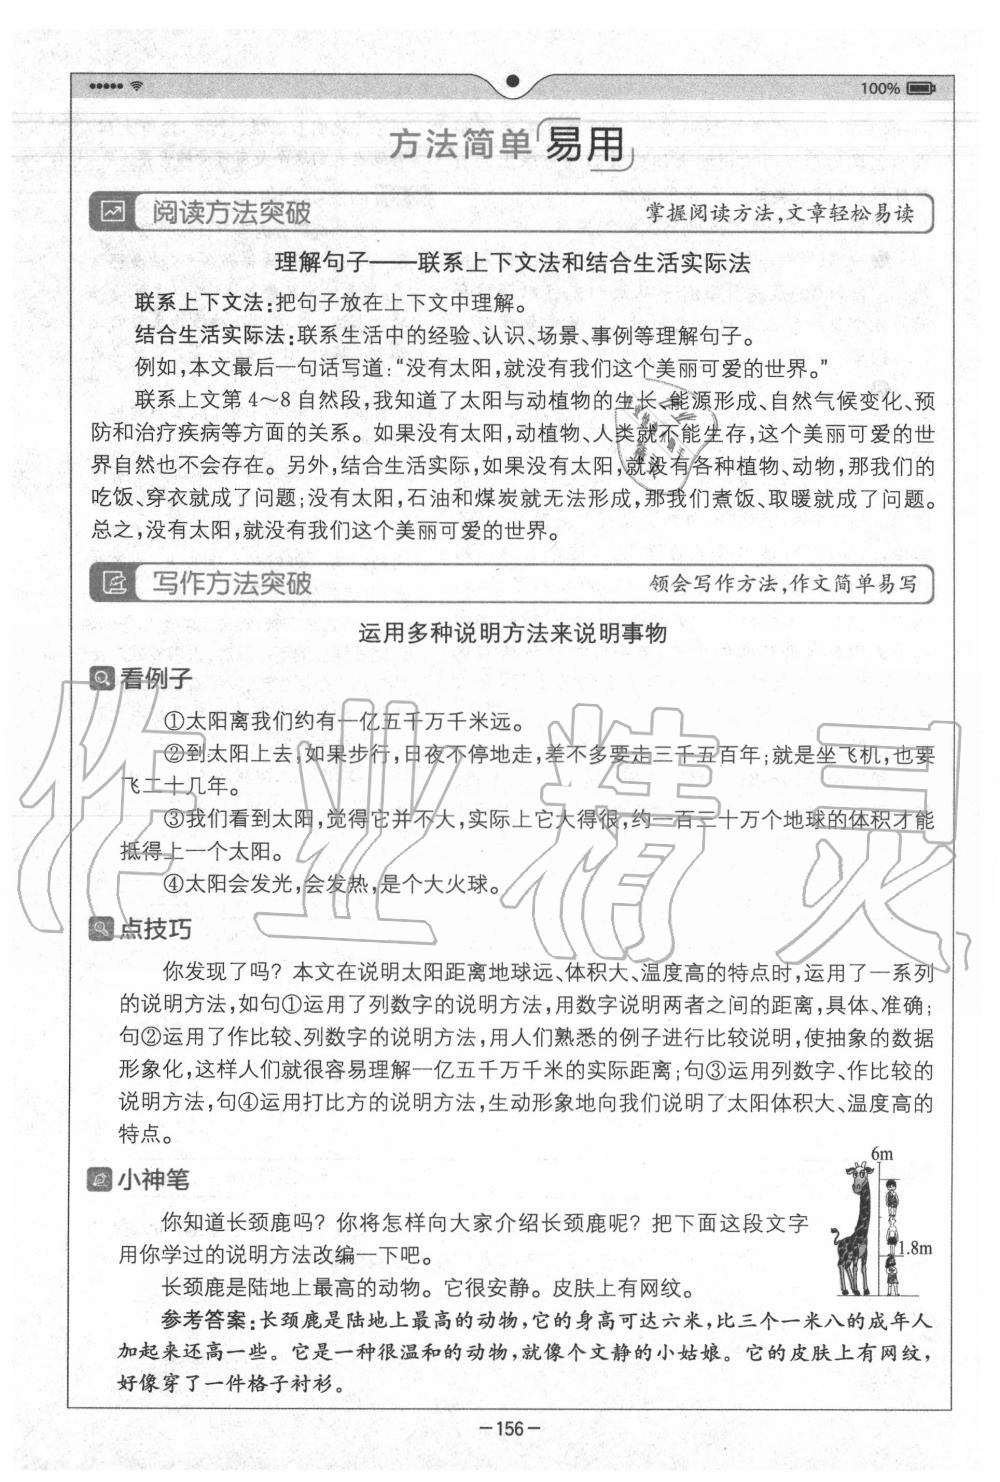 100%
方法简单易用
阅读方法突破 掌握阅读方法,文章轻松易读
理解句子——联系上下文法和结合生活实际法
联系上下文法:把句子放在上下文中理解。
结合生活实际法:联系生活中的经验、认识、场景、事例等理解句子。
例如,本文最后一句话写道:“没有太阳,就没有我们这个美丽可爱的世界。”
联系上文第4~8自然段,我知道了太阳与动植物的生长、能源形成、自然气候变化、预
防和治疗疾病等方面的关系。如果没有太阳,动植物、人类就不能生存,这个美丽可爱的世
界自然也不会存在。另外,结合生活实际,如果没有太阳,就没有各种植物、动物,那我们的
吃饭、穿衣就成了问题;没有太阳,石油和煤炭就无法形成,那我们煮饭、取暖就成了问题。
总之,没有太阳,就没有我们这个美丽可爱的世界。
写作方法突破 领会写作方法,作文简单易写
运用多种说明方法来说明事物
看例子
①太阳离我们约有一亿五千万千米远。
②到太阳上去,如果步行,日夜不停地走,差不多要走三千五百年;就是坐飞机,也要
飞二十几年。
③我们看到太阳,觉得它并不大,实际上它大得很,约一百三十万个地球的体积才能
抵得上一个太阳。
④太阳会发光,会发热,是个大火球。
点技巧
你发现了吗?本文在说明太阳距离地球远、体积大、温度高的特点时,运用了一系列
的说明方法,如句①运用了列数字的说明方法,用数字说明两者之间的距离,具体、准确;
句②运用了作比较、列数字的说明方法,用人们熟悉的例子进行比较说明,使抽象的数据
形象化,这样人们就很容易理解一亿五千万千米的实际距离;句③运用列数字、作比较的
说明方法,句④运用打比方的说明方法,生动形象地向我们说明了太阳体积大、温度高的
特点。
小神笔
6m
你知道长颈鹿吗?你将怎样向大家介绍长颈鹿呢?把下面这段文字
用你学过的说明方法改编一下吧。
1.8m
长颈鹿是陆地上最高的动物。它很安静。皮肤上有网纹。
参考答案:长颈鹿是陆地上最高的动物,它的身高可达六米,比三个一米八的成年人
加起来还高一些。它是一种很温和的动物,就像个文静的小姑娘。它的皮肤上有网纹,
好像穿了一件格子衬衫。
-156-
作业精灵